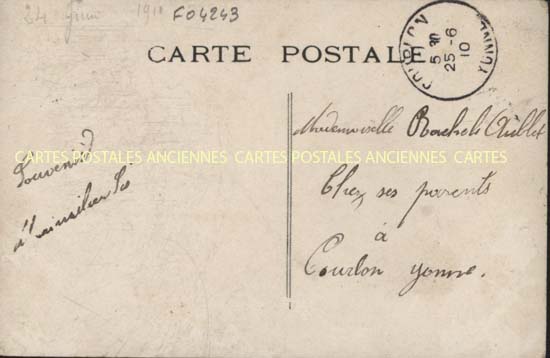 24 Juin 1910
F04243
CARTE POSTALE
COURLON YONNE
5 30
25-6
10
Mademoiselle Rachel
CARTES POSTALES ANCIENNES CARTES POSTALES ANCIENNES CARTES
Souvenir
Chez ses parents
à
Courlon Yonne.